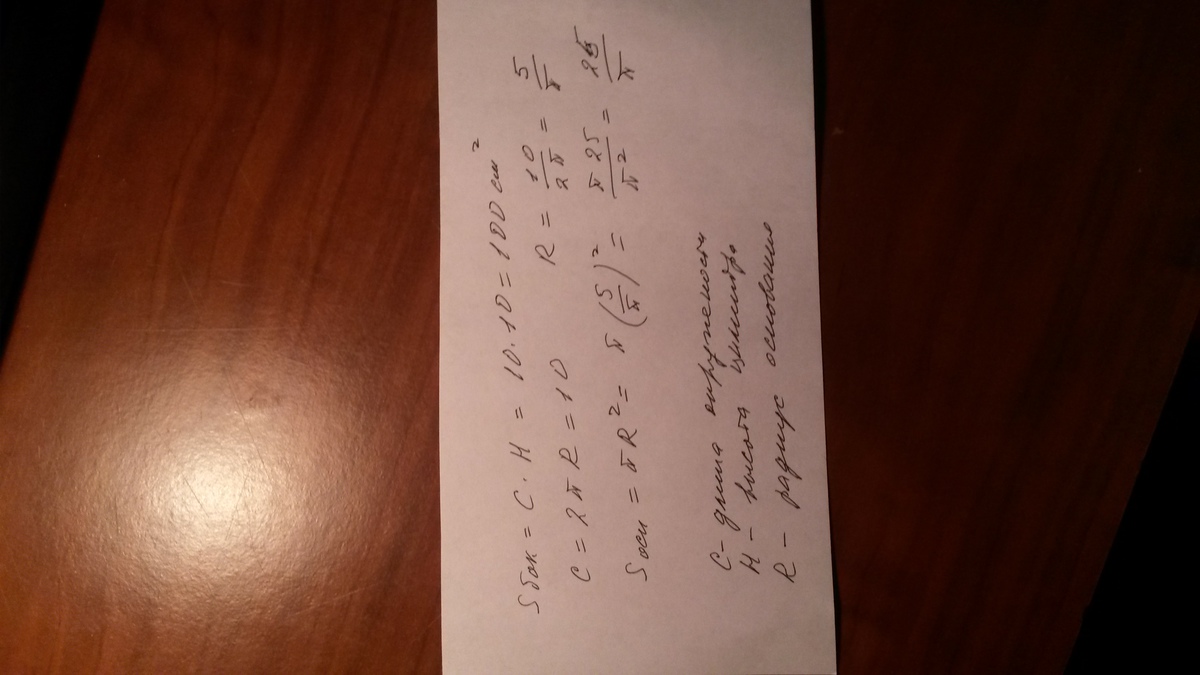 S бок = C · H = 10 · 10 = 100 см²
C = 2πR = 10 R = 10/2π = 5/π
S осн = πR² = π(5/π)² = π25/π² = 25/π
C - длина окружности
H - высота цилиндра
R - радиус основания